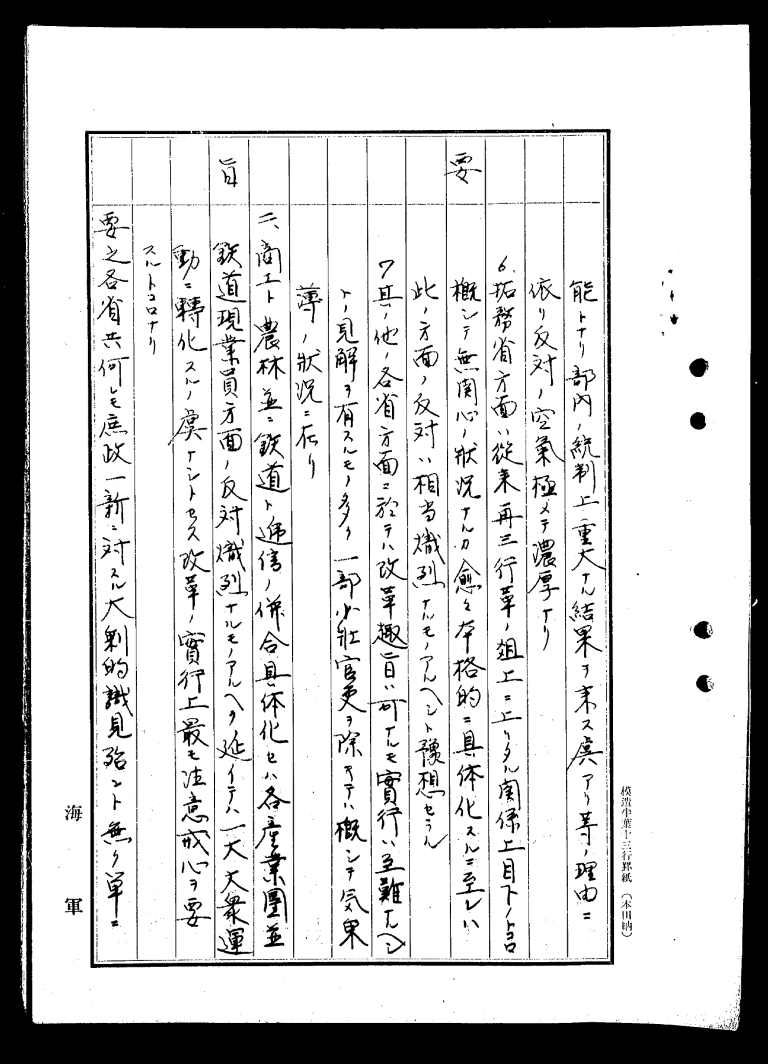 要旨
能トナリ部内ノ統制上重大ナル結果ヲ来ス虞アリ等ノ理由ニ
依リ反対ノ空気極メテ濃厚ナリ
6.拓務省方面ハ従来再三行革ノ俎上ニ上リタル関係上目下ノトコロ
概シテ無関心ノ状況ナルカ愈々本格的ニ具体化スルニ至レハ
此ノ方面ノ反対ハ相当熾烈ナルモノアルヘシト豫想セラル
7其ノ他ノ各省方面ニ於テハ改革趣旨ハ可ナルモ實行ハ至難ナルヘシ
トノ見解ヲ有スルモノ多ク一部少壮官吏ヲ除キテハ概シテ気乗
薄ノ状況ニ在リ
二、商工ト農林並ニ鉄道ト逓信ノ併合具体化セハ各産業團並
鉄道現業員方面ノ反対熾烈ナルモノアルヘク延イテハ一大大衆運
動ニ轉化スルノ虞ナシトセス改革ノ實行上最モ注意戒心ヲ要
スルトコロナリ
要之各省共何レモ庶政一新ニ対スル大剰的識見殆ント無ク単ニ
海軍
模造半葉十三行罫紙 (本田納)